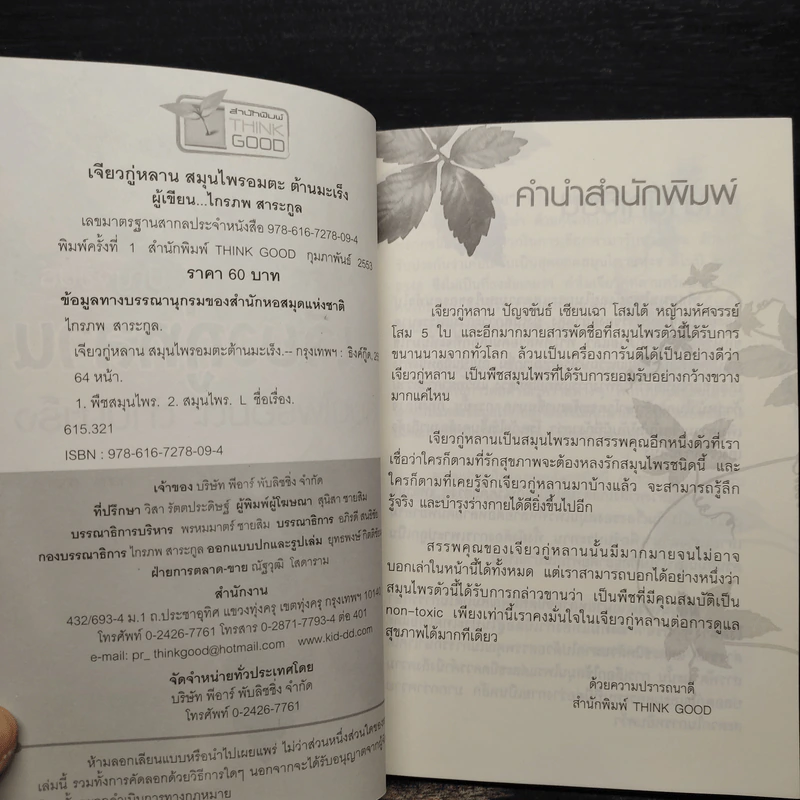 สำนักพิมพ์
THINK
GOOD
เจียวกู่หลาน สมุนไพรอมตะ ต้านมะเร็ง
ผู้เขียน...ไกรภพ สาระกูล
เลขมาตรฐานสากลประจำหนังสือ 978-616-7278-09-4
พิมพ์ครั้งที่ 1 สำนักพิมพ์ THINK GOOD กุมภาพันธ์ 2553
ราคา 60 บาท
ข้อมูลทางบรรณานุกรมของสำนักหอสมุดแห่งชาติ
ไกรภพ สาระกูล.
เจียวกู่หลาน สมุนไพรอมตะต้านมะเร็ง.-- กรุงเทพฯ : ธิงค์กู๊ด, 25
64 หน้า.
1. พืชสมุนไพร. 2. สมุนไพร. I. ชื่อเรื่อง.
615.321
ISBN : 978-616-7278-09-4
เจ้าของ บริษัท พีอาร์ พับลิชชิ่ง จำกัด
ที่ปรึกษา วิสา รัตตประดิษฐ์ ผู้พิมพ์ผู้โฆษณา สุนิสา ชายสิม
บรรณาธิการบริหาร พรหมมาตร์ ชายสิม บรรณาธิการ อภิรดี
กองบรรณาธิการ ไกรภพ สาระกูล ออกแบบปกและรูปเล่ม ยุทธพงษ์
ฝ่ายการตลาด-ขาย ณัฐวุฒิ โสดาราม
สำนักงาน
432/693-4 ม.1 ถ.ประชาอุทิศ แขวงทุ่งครุ เขตทุ่งครุ กรุงเทพฯ 10140
โทรศัพท์ 0-2426-7761 โทรสาร 0-2871-7793-4 ต่อ 401
e-mail: pr_thinkgood@hotmail.com www.kid-dd.com
จัดจำหน่ายทั่วประเทศโดย
บริษัท พีอาร์ พับลิชชิ่ง จำกัด
โทรศัพท์ 0-2426-7761
ห้ามลอกเลียนแบบหรือนำไปเผยแพร่ ไม่ว่าส่วนหนึ่งส่วนใดของ
เล่มนี้ รวมทั้งการคัดลอกด้วยวิธีการใดๆ นอกจากจะได้รับอนุญาตจาก
คำนำสำนักพิมพ์
เจียวกู่หลาน ปัญจขันธ์ เซียนเฉา โสมใต้ หญ้ามหัศจรรย์
โสม 5 ใบ และอีกมากมายสารพัดชื่อที่สมุนไพรตัวนี้ได้รับการ
ขนานนามจากทั่วโลก ล้วนเป็นเครื่องการันตีได้เป็นอย่างดีว่า
เจียวกู่หลาน เป็นพืชสมุนไพรที่ได้รับการยอมรับอย่างกว้างขวาง
มากแค่ไหน
เจียวกู่หลานเป็นสมุนไพรมากสรรพคุณอีกหนึ่งตัวที่เรา
เชื่อว่าใครก็ตามที่รักสุขภาพจะต้องหลงรักสมุนไพรชนิดนี้ และ
ใครก็ตามที่เคยรู้จักเจียวกู่หลานมาบ้างแล้ว จะสามารถรู้ลึก
รู้จริง และบำรุงร่างกายได้ดียิ่งขึ้นไปอีก
สรรพคุณของเจียวกู่หลานนั้นมีมากมายจนไม่อาจ
บอกเล่าในหน้านี้ได้ทั้งหมด แต่เราสามารถบอกได้อย่างหนึ่งว่า
สมุนไพรตัวนี้ได้รับการกล่าวขานว่า เป็นพืชที่มีคุณสมบัติเป็น
non-toxic เพียงเท่านี้เราคงมั่นใจในเจียวกู่หลานต่อการดูแล
สุขภาพได้มากทีเดียว
ด้วยความปรารถนาดี
สำนักพิมพ์ THINK GOOD